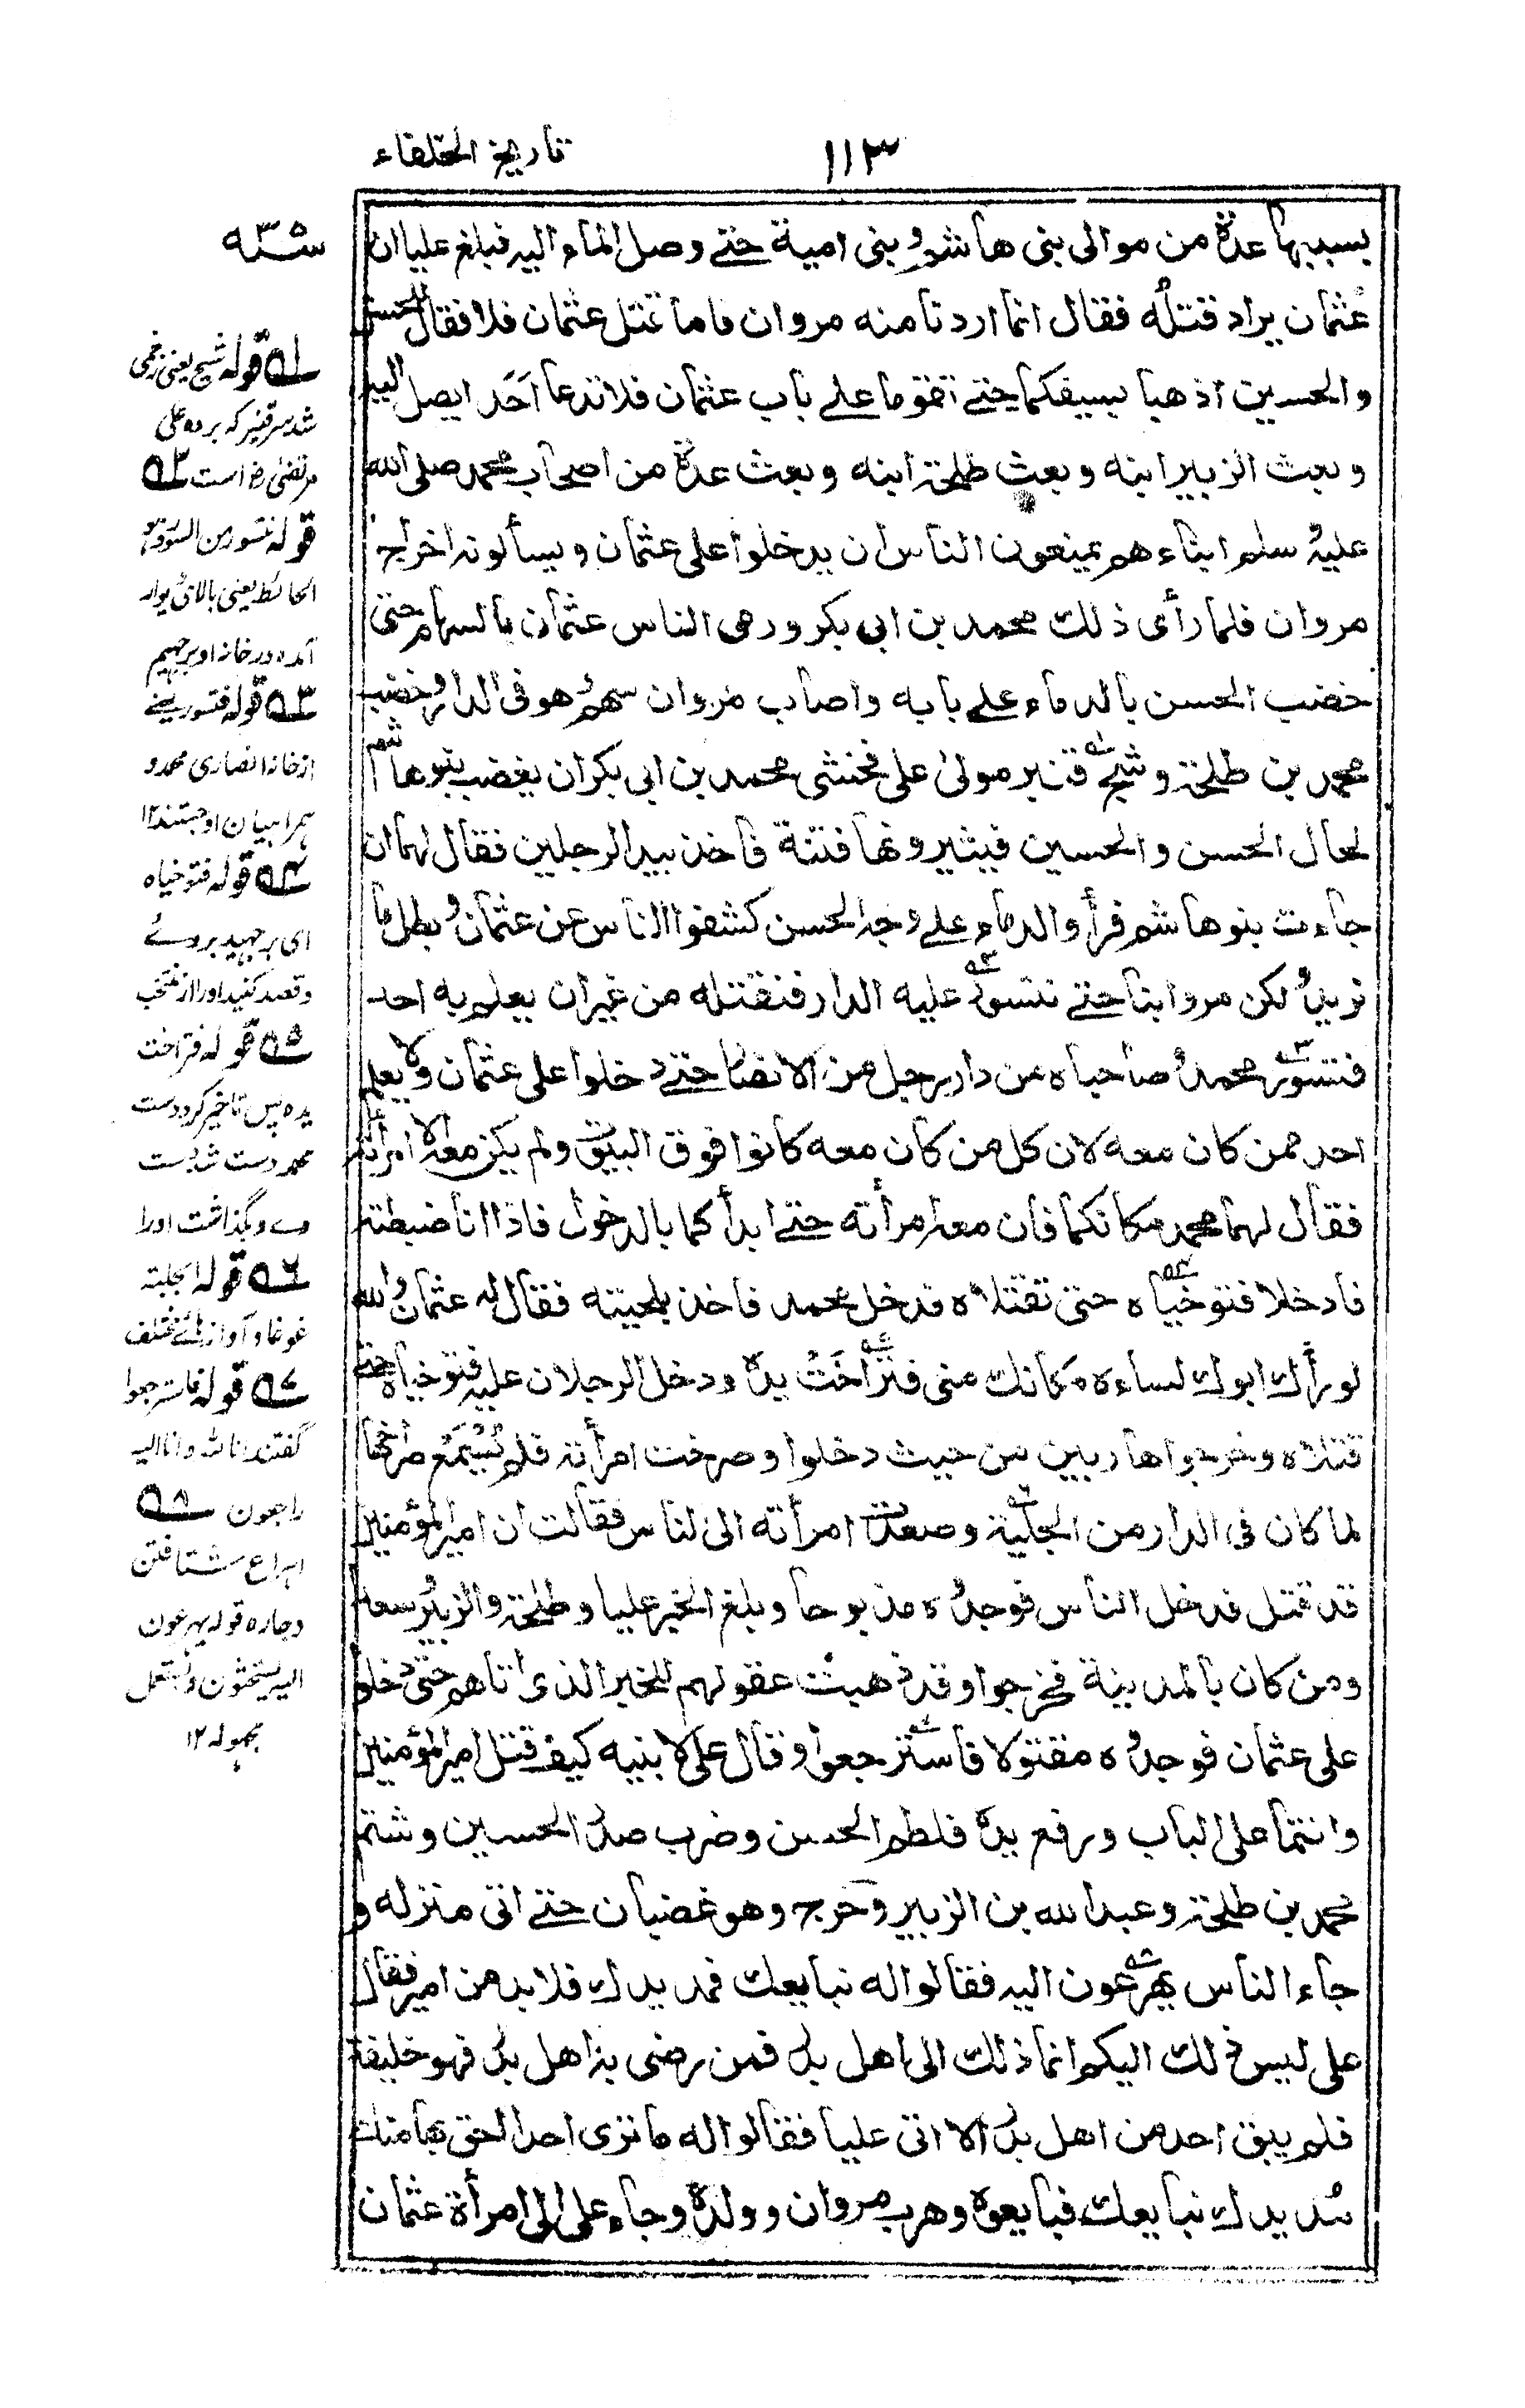 ١١٣
تاريخ الخلفاء
بسببها عدة من موالى بنى هاشم و بنى امية حتے وصل الماء اليه فبلغ عليا ان
عثمان يراد قتله فقال انما اردنا منه مروان فاما قتل عثمان فلا فقال للحسن
والحسين اذهبا بسيفكما حتے تقوما علے باب عثمان فلا تدعا احدا يصل اليه
وبعث الزبير ابنه وبعث طلحة ابنه وبعث عدة من اصحاب محمد صلى الله
عليه وسلم ابناءهم يمنعون الناس ان يدخلوا على عثمان ويسألونه اخراج
مروان فلما رأى ذلك محمد بن ابى بكر ورمى الناس عثمان بالسهام حتى
خضب الحسن بالدماء علے بابه واصاب مروان سهم وهو فى الدار وخضب
محمد بن طلحة وشج قنبر مولىٰ على فخشى محمد بن ابى بكر ان يغضب بنو هاشم
لحال الحسن والحسين فيثيرونها فتنة فاخذ بيد الرجلين فقال لهما ان
جاءت بنو هاشم فرأوا الدماء علے وجه الحسن كشفوا الناس عن عثمان وبطل ما
نريد ولكن مروا بنا حتے نتسور عليه الدار فنقتله من غير ان يعلم به احد
فتسور محمد وصاحباه من دار رجل من الانصار حتے دخلوا على عثمان ولا يعلم
احد ممن كان معه لان كل من كان معه كانوا فوق البيوت ولم يكن معه الا امرأته
فقال لهما محمد مكانكما فان معه امرأته حتے ابدأكما بالدخول فاذا انا ضبطته
فادخلا فتوخياه حتى تقتلاه فدخل محمد فاخذ بلحيته فقال له عثمان والله
لو رأك ابوك لساءه مكانك منى فتراخت يده ودخل الرجلان عليه فتوخياه حتے
قتلاه وخرجوا هاربين من حيث دخلوا وصرخت امرأته فلم يسمع صراخها
لما كان فى الدار من الجلبة وصعدت امرأته الى الناس فقالت ان امير المؤمنين
قد قتل فدخل الناس فوجدوه مذبوحا وبلغ الخبر عليا وطلحة والزبير وسعدا
ومن كان بالمدينة فخرجوا وقد ذهبت عقولهم للخبر الذى اتاهم حتى دخلوا
على عثمان فوجدوه مقتولا فاسترجعوا وقال على لابنيه كيف قتل امير المؤمنين
وانتما على الباب ورفع يده فلطم الحسن وضرب صدر الحسين وشتم
محمد بن طلحة وعبد الله بن الزبير وخرج وهو غضبان حتے اتى منزله و
جاء الناس يهرعون اليه فقالوا له نبايعك فمد يدك فلا بد من امير فقال
على ليس ذلك اليكم انما ذلك الى اهل بدر فمن رضى به اهل بدر فهو خليفة
فلم يبق احد من اهل بدر الا اتى عليا فقالوا له ما نرى احدا احق بها منك
مد يدك نبايعك فبايعوه وهرب مروان وولده وجاء على الى امرأة عثمان
سنه ٣٥
١ قوله شج يعنى زخمى
شد سر قنبر كه برده على
مرتضىٰ رض است ٢
قوله نتسور من التسور
الحائط يعنى بالائ ديوار
آمده در خانه او برجهيم
٣ قوله فتسور يعنے
از خانه انصارى محمد و
همراهيان او جستند ١٢
٤ قوله فتوخياه
اى برجهيد بروے
وقصد كنيد او را از منتخب
٥ قوله فتراخت
يده پس تاخير كرد دست
محمد و سست شد دست
وے و بگذاشت او را
٦ قوله الجلبة
غوغا و آواز ہائے مختلف
٧ قوله فاسترجعوا
گفتند انا لله وانا اليه
راجعون ٨
اهراع شتافتن
وجاره قوله يهرعون
اليه يستحثون و يستعمل
مجهولا ١٢